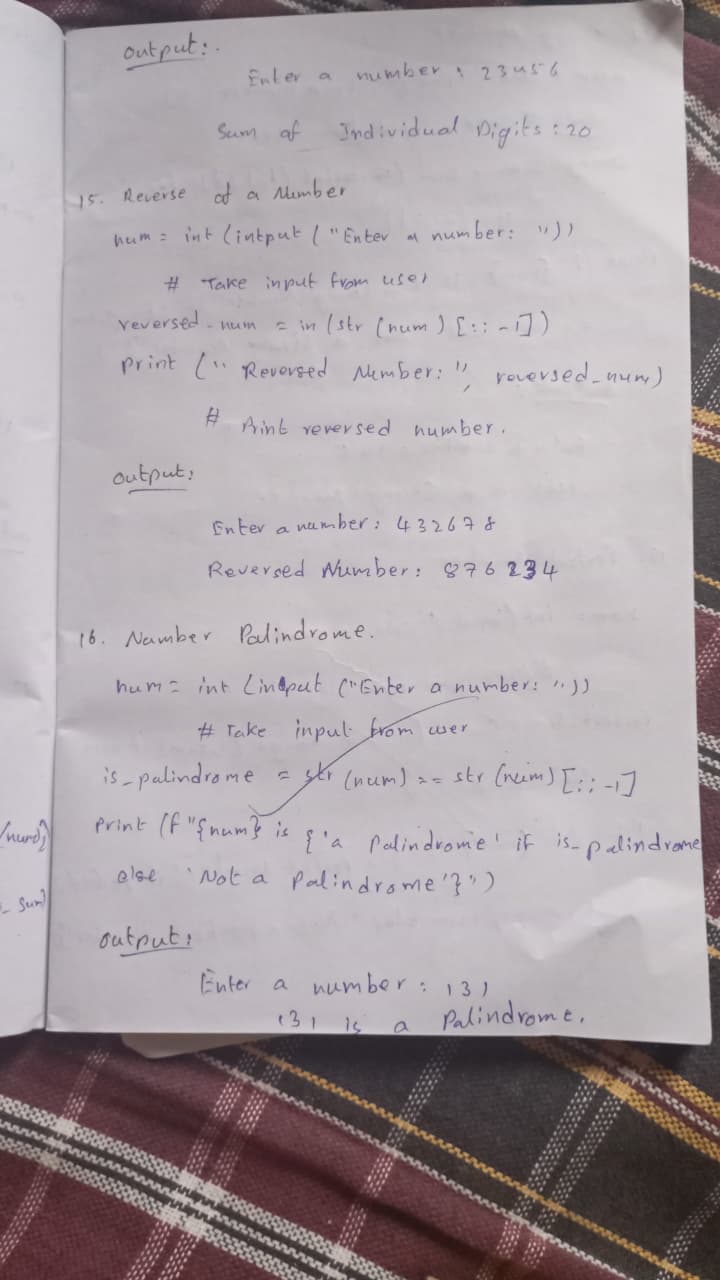 Output:.
Enter a number : 23456
Sum of Individual Digits : 20
15. Reverse of a Number
num = int (intput ("Enter a number: "))
# Take input from user
reversed_num = in (str (num) [::-1])
Print (" Reversed Number: ", reversed_num)
# Print reversed number.
Output:
Enter a number: 432678
Reversed Number: 876234
16. Number Palindrome.
num = int (input ("Enter a number: "))
# Take input from user
is_palindrome = str (num) == str (num) [::-1]
Print (f "{num} is {'a Palindrome' if is_palindrome
else 'Not a Palindrome'}")
Output:
Enter a number: 131
131 is a Palindrome.